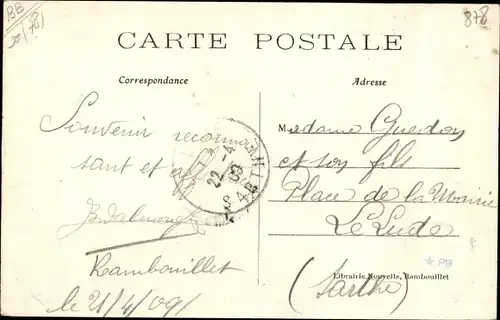 BB
78
878
CARTE POSTALE
Correspondance
Adresse
Souvenir reconnais
sant et
Rambouillet
le 21/4/09
Madame Guedon
et son fils
Place de la Mairie
Le Lude
(Sarthe)
22 - 4
09
Librairie Nouvelle, Rambouillet
PB